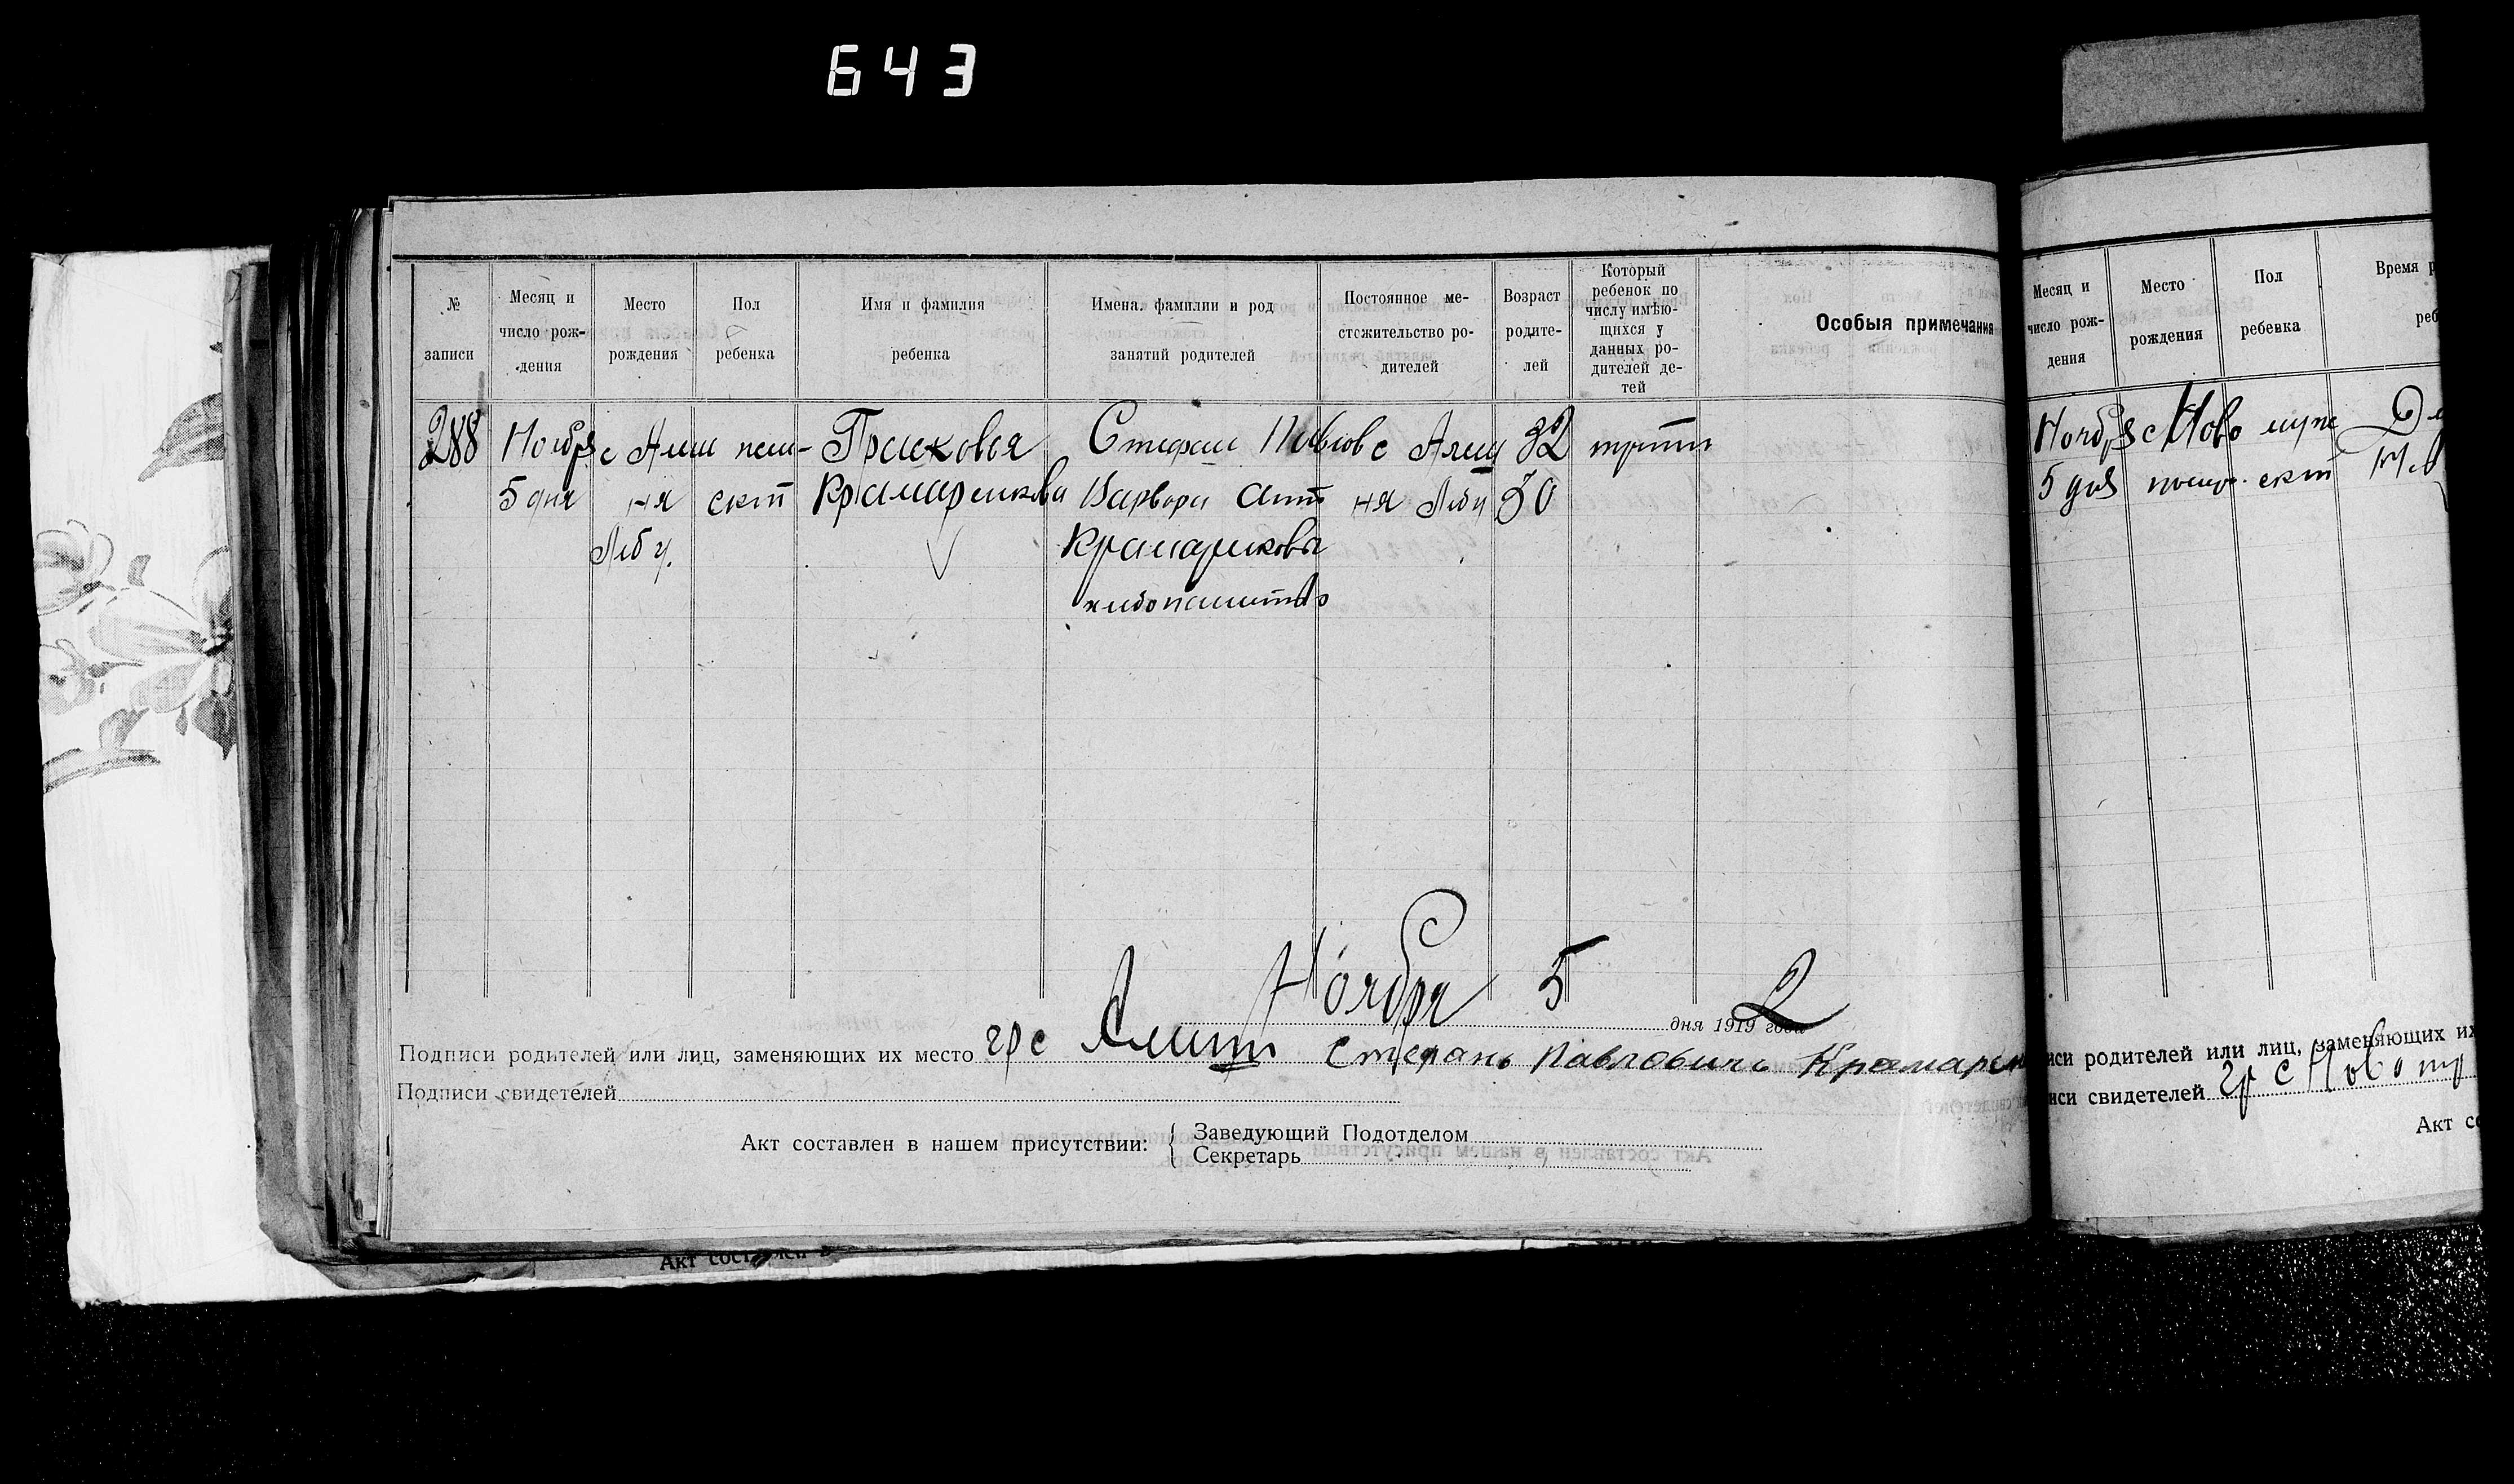 643
№ записи
Месяц и число рож-дения
Место рождения
Пол ребенка
Имя и фамилия ребенка
Имена, фамилии и род занятий родителей
Постоянное ме-стожительство ро-дителей
Возраст родите-лей
Который ребенок по числу имѣю-щихся у данных ро-дителей де-тей
Особыя примечания
288 Ноября с женс- Прасковья Стефан Павлов с 32
5 дня ня ский Крамаренкова Варвара ня 30
Крамаренковы
хлебопашество
Ноября 5 дня 1919 года 2
Подписи родителей или лиц, заменяющих их место гр с Стефанъ Павловичъ Крамарен
Подписи свидетелей
Акт составлен в нашем присутствии:
Заведующий Подотделом
Секретарь
Акт составлен в
Месяц и число рож-дения
Место рождения
Пол ребенка
Время р
реб
Ноября с Ново муж
5 дня ский
иси родителей или лиц, заменяющих их
иси свидетелей гр с Ново
Акт со